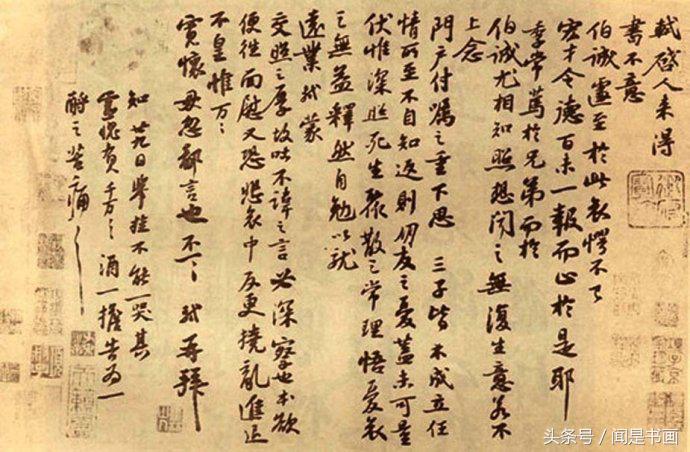 軾啓人來得
書不意
伯誠遽至於此哀愕不已
宏才令德百未一報而止於是耶
季常篤於兄弟而於
伯誠尤相知照想聞之無復生意若不
上念
門戶付囑之重下思三子皆不成立任
情所至不自知返則朋友之憂蓋未可量
伏惟深照死生聚散之常理悟憂哀
之無益釋然自勉以就
遠業軾蒙
交照之厚故吐不諱之言必深察也本欲
便往面慰又恐悲哀中反更撓亂進退
不皇惟萬萬
寬懷毋忽鄙言也不一一軾再拜
知廿九日舉挂不能一哭其
靈愧負千万千万酒一擔告為一
酹之苦痛苦痛
头条号/闻是书画